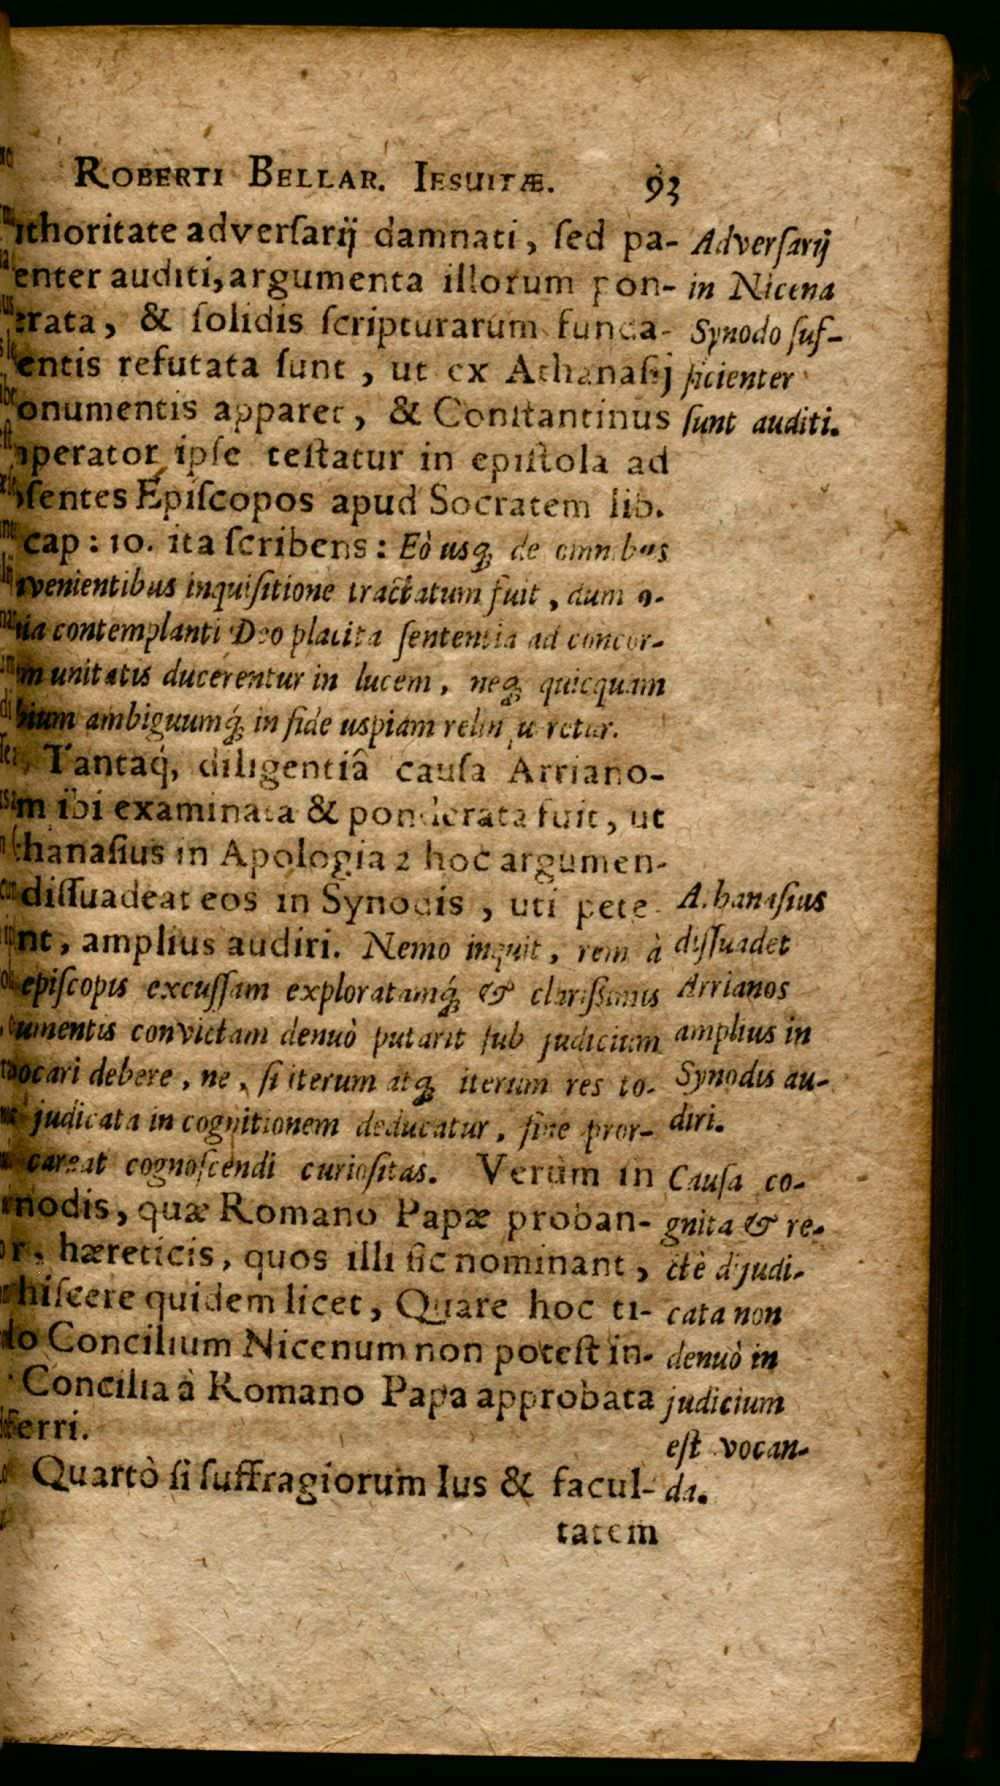 ROBERTI BELLAR. IESUITÆ. 93
ithoritate adverſarij damnati, ſed pa-
enter auditi, argumenta illorum pon-
erata, & ſolidis ſcripturarum funda-
entis refutata ſunt, ut ex Athanaſij
onumentis apparet, & Conſtantinus
perator ipſe teſtatur in epiſtola ad
ſentes Epiſcopos apud Socratem lib.
cap: 10. ita ſcribens: Eò uſq́; de omnibus
venientibus inquiſitione tractatum fuit, dum o-
ia contemplanti Deo placita ſententia ad concor-
m unitatis ducerentur in lucem, neq́; quicquam
bium ambiguumq́; in fide uspiam relin u retur.
Tantaq́, diligentiâ cauſa Arriano-
m ibi examinata & ponderata fuit, ut
hanaſius in Apologia 2 hoc argumen-
diſſuadeat eos in Synodis, uti pete
nt, amplius audiri. Nemo inquit, rem à
epiſcopis excuſſam exploratamq́; & clariſſimis
umentis convictam denuò putarit ſub judicium
ocari debere, ne, ſi iterum atq́; iterum res to-
judicata in cognitionem deducatur, ſine pror-
careat cognoſcendi curioſitas. Verùm in
nodis, quæ Romano Papæ proban-
r, hæreticis, quos illi ſic nominant,
hiſcere quidem licet, Quare hoc ti-
lo Concilium Nicenum non poteſt in-
Concilia à Romano Papa approbata
erri.
Quartò ſi ſuffragiorum Ius & facul-
tatem
Adverſarij
in Nicena
Synodo ſuf-
ficienter
ſunt auditi.
A hanaſius
diſſuadet
Arrianos
amplius in
Synodis au-
diri.
Cauſa co-
gnita & re-
ctè dijudi-
cata non
denuò in
judicium
eſt vocan-
da.